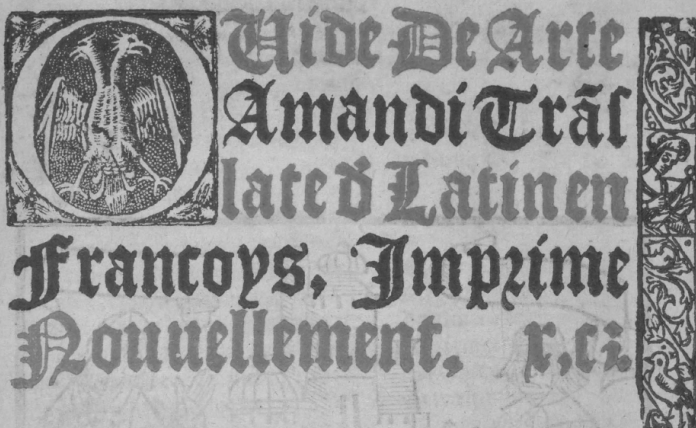 OUide De Arte
Amandi Trãſ
late đ Latin en
Francoys, Imprime
Nouuellement, x,cꝫ